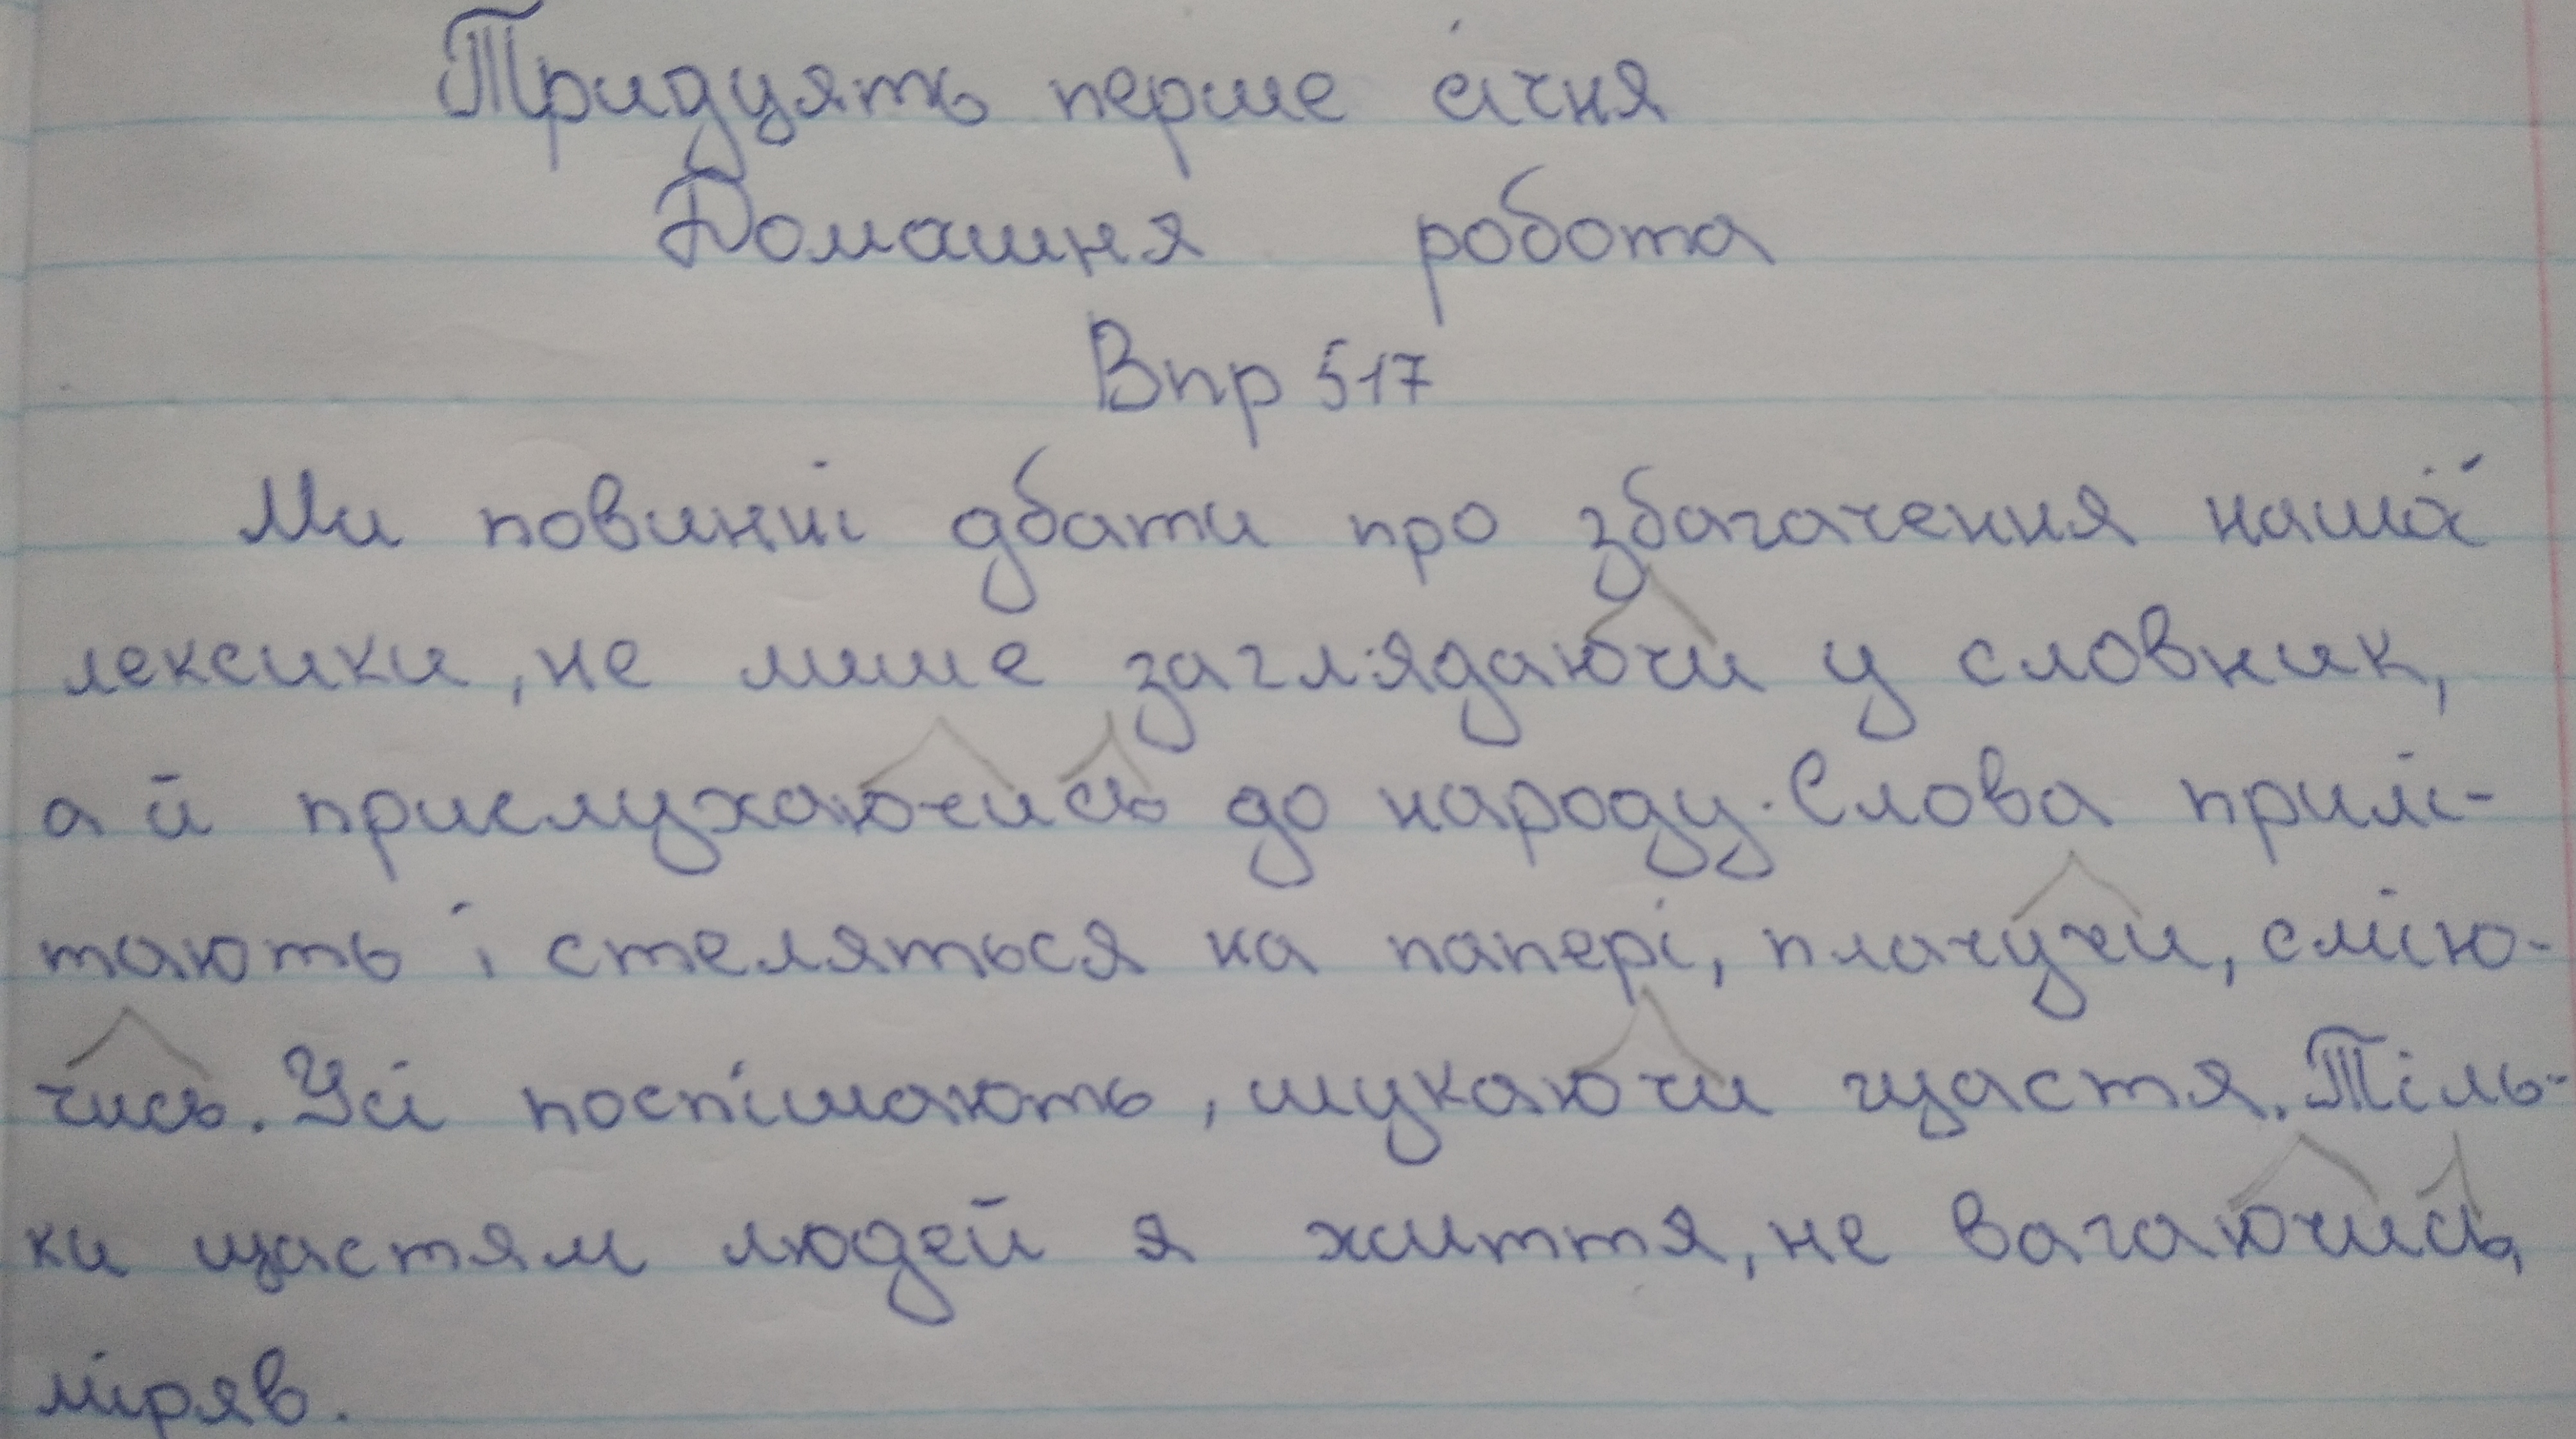 Тридцять перше січня
Домашня робота
Впр 517
Ми повинні дбати про збагачення нашої
лексики, не лише заглядаючи у словник,
а й прислухаючись до народу. Слова прилі-
тають і стеляться на папері, плачучи, смію-
чись. Усі поспішають, шукаючи щастя. Тіль-
ки щастям людей я життя, не вагаючись,
міряв.